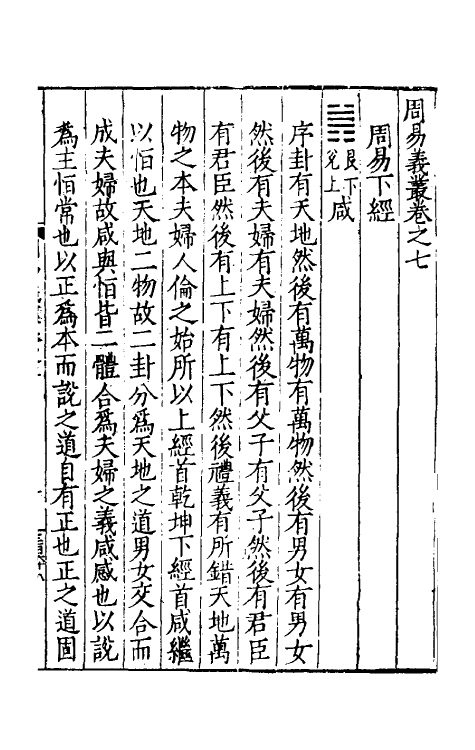 周易義叢卷之七
周易下經
䷞艮下兌上咸
序卦有天地然後有萬物有萬物然後有男女有男女
然後有夫婦有夫婦然後有父子有父子然後有君臣
有君臣然後有上下有上下然後禮義有所錯天地萬
物之本夫婦人倫之始所以上經首乾坤下經首咸繼
以恒也天地二物故二卦分爲天地之道男女交合而
成夫婦故咸與恒皆二體合爲夫婦之義咸感也以說
爲主恒常也以正爲本而說之道自有正也正之道固